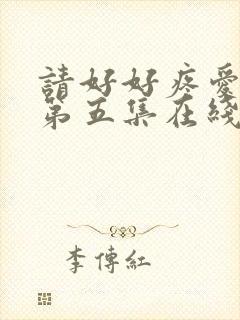 請好好疼愛
第五集在綫
李傳紅